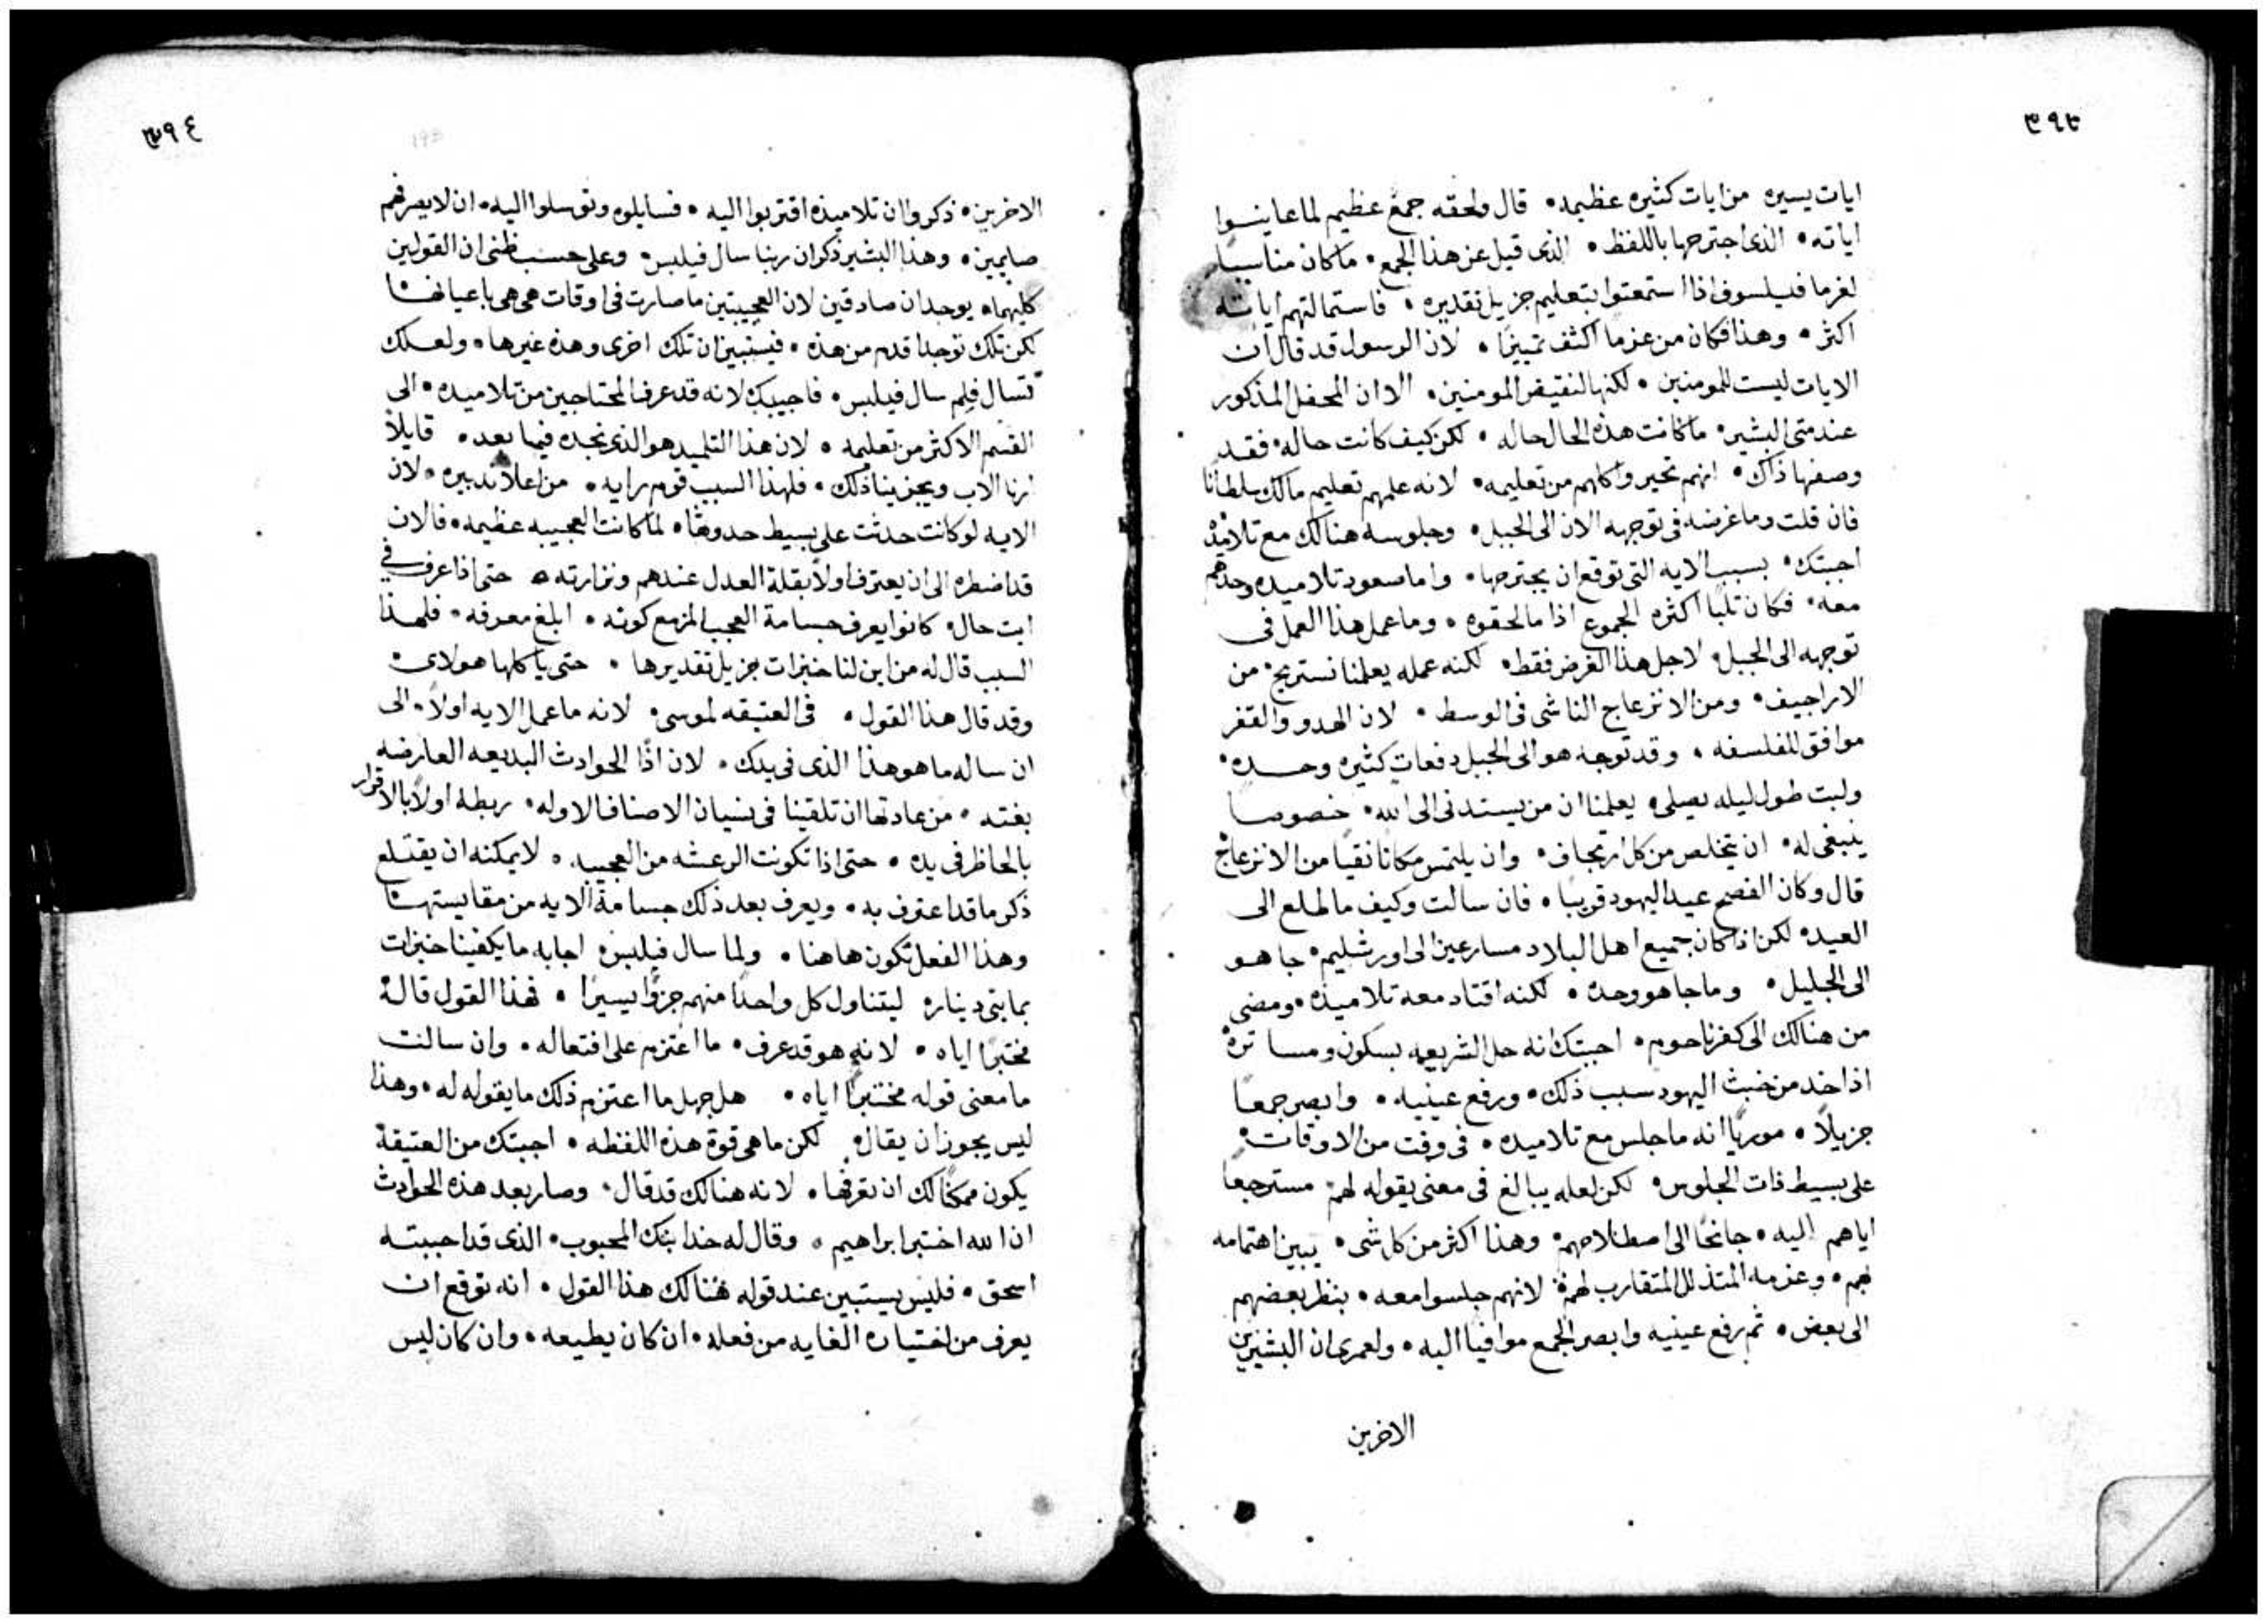 ٣٩٣
ايات يسيره من ايات كثيره عظيمه • قال ولحقه جمع عظيم لما عاينوا
اياته • الذى اجترحها باللفظ • الذى قيل عن هذا الجمع • ما كان مناسبًا
لغرما فيلسوف اذا استمعتوا بتعليم جزيل تقديره • فاستمالتهم اياته
اكثر • وهذا فكان من عزما اكثف تمييزًا • لان الرسول قد قال ان
الايات ليست للمومنين • لكنها لنقيض المومنين • الا ان المحفل المذكور
عند متى البشير • ما كانت هذه الحال حاله • لكن كيف كانت حاله • فقد
وصفها ذاك • انهم تحيروا كلهم من تعليمه • لانه علمهم تعليم مالك سلطانًا
فان قلت وما غرضه فى توجهه الان الى الجبل • وجلوسه هنالك مع تلاميذه
اجبتك • بسبب الايه التى توقع ان يجترحها • واما صعود تلاميده وحدهم
معه • فكان ثلبًا اكثره الجموع اذا ما لحقوه • وما عمل هذا العمل فى
توجهه الى الجبل • لاجل هذا الغرض فقط • لكنه عمله يعلمنا نستريح • من
الاراجيف • ومن الانزعاج الناشى فى الوسط • لان الهدو والقفر
موافق للفلسفه • وقد توجه هو الى الجبل دفعات كثيره وحده •
ولبت طول ليله يصلى • يعلمنا ان من يستدنى الى الله • خصوصا
ينبغى له • ان يتخلص من كل ارتجاف • وان يلتمس مكانا نقيا من الانزعاج
قال وكان الفصح عيد اليهود قريبا • فان سالت وكيف ما طلع الى
العيد • لكن اذ كان جميع اهل البلاد مسارعين الى اورشليم • جا هو
الى الجليل • وما جا هو وحده • لكنه اقتاد معه تلاميذه • ومضى
من هنالك الى كفرناحوم • اجبتك انه حل الشريعه بسكون ومساترة
اذ اخد من خبث اليهود سبب ذلك • ورفع عينيه • وابصر جمعًا
جزيلاً • موريًا انه ما جلس مع تلاميده • فى وقت من الاوقات •
على بسيط ذات الجلوس • لكن لعله يبالغ فى معنى يقوله لهم • مسترجعا
اياهم اليه • جانحًا الى اصطلاحهم • وهذا اكثر من كل شى • يبين اهتمامه
بهم • وعزمه المتذلل المتقارب لهم • لانهم جلسوا معه • بنظر بعضهم
الى بعض • ثم رفع عينيه وابصر الجمع موافيا اليه • ولعمرى ان البشيرين
الاخرين
٣٩٤
الاخرين • ذكروا ان تلاميذه اقتربوا اليه • فسايلوه وتوسلوا اليه • ان لا يصرفهم
صايمين • وهذا البشير ذكر ان ربنا سال فيلبس • وعلى حسب ظنى ان القولين
كليهما • يوجدان صادقين لان العجيبتين ما صارت فى اوقات هى هى باعيانها
لكن تلك توجد اقدم من هذه • فيستبين ان تلك اخرى وهذه غيرها • ولعلك
تسال فلم سال فيلبس • فاجيبك لانه قد عرف المحتاجين من تلاميده • الى
القسم الاكثر من تعليمه • لان هذا التلميد هو الذى نجده فيما بعد • قايلاً
ارنا الاب ويجزينا ذلك • فلهذا السبب قوم رايه • من اعلا تدبيره • لان
الايه لو كانت حدثت على بسيط حدوثها • لما كانت العجيبه عظيمه • فالان
قد اضطره الى ان يعترف اولاً بقلة العدل عندهم ونزارته • حتى اذا عرف فى
ايت حال • كانوا يعرف جسامة العجب المزمع كونه • ابلغ معرفه • فلهذا
السبب قال له من اين لنا خبزات جزيل تقديرها • حتى ياكلها هولاى •
وقد قال هذا القول • فى العتيقه لموسى • لانه ما عمل الايه اولاً • الى
ان ساله ما هو هذا الذى فى يدك • لان اذًا الحوادث البديعه العارضه
بغته • من عادتها ان تلقينا فى نسيان الاصناف الاوله • ربطه اولاً بالاقرار
بالحاظر فى يده • حتى اذا تكونت الرعشه من العجيبه • لا يمكنه ان يقتلع
ذكر ما قد اعترف به • ويعرف بعد ذلك جسامة الايه من مقايستها
وهذا الفعل تكون هاهنا • ولما سال فيلبس • اجابه ما يكفينا خبزات
بمايتى دينار • ليتناول كل واحدًا منهم جزًوا يسيرًا • فهذا القول قاله
مختبرًا اياه • لانه هو قد عرف • ما اعتزم على افتعاله • وان سالت
ما معنى قوله مختبرًا اياه • هل جهل ما اعتزم ذلك ما يقوله له • وهذا
ليس يجوز ان يقال • لكن ما هى قوة هذه اللفظه • اجبتك من العتيقة
يكون ممكنًا لك ان تعرفها • لانه هنالك قد قال • وصار بعد هذه الحوادث
ان الله اختبر ابراهيم • وقال له خد ابنك المحبوب • الذى قد احببته
اسحق • فليس يستبين عند قوله هنالك هذا القول • انه توقع ان
يعرف من اختياره الغايه من فعله • ان كان يطيعه • وان كان ليس